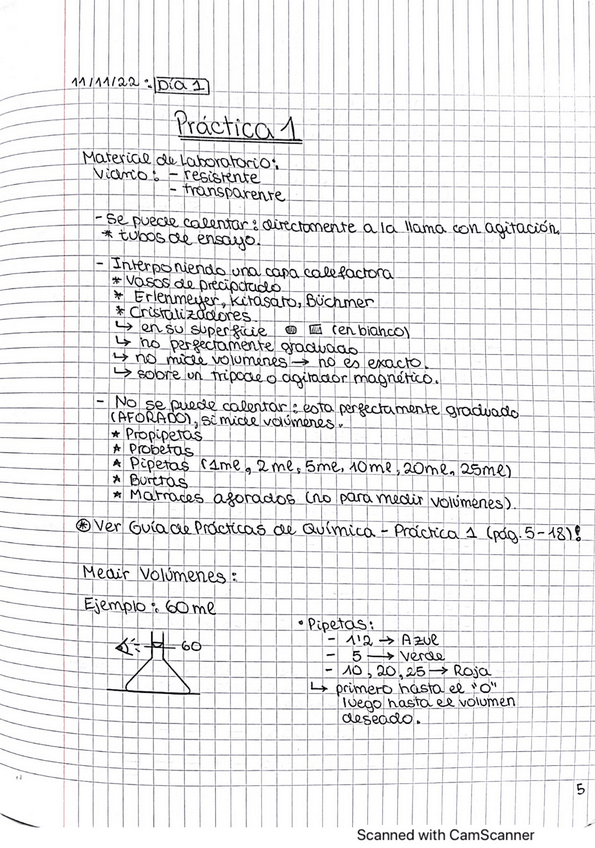 11/11/22 : Día 1
Práctica 1
Material de Laboratorio:
Vidrio: - resistente
- transparente
- Se puede calentar: directamente a la llama con agitación.
* tubos de ensayo.
- Interponiendo una capa calefactora
* Vasos de precipitado
* Erlenmeyer, kitasato, Büchmer
* Cristalizadores
↳ en su superficie (en blanco)
↳ no perfectamente graduado
↳ no mide volúmenes → no es exacto.
↳ sobre un trípode o agitador magnético.
- No se puede calentar: esta perfectamente graduado
(AFORADO), si mide volúmenes.
* Propipetas
* Probetas
* Pipetas (1ml, 2ml, 5ml, 10ml, 20ml, 25ml)
* Buretas
* Matraces aforados (no para medir volúmenes).
* Ver Guía de Prácticas de Química - Práctica 1 (pág. 5-18)!
Medir Volúmenes:
Ejemplo: 60ml
60
• Pipetas:
- 1'2 → Azul
- 5 → Verde
- 10, 20, 25 → Roja
↳ primero hasta el "0"
luego hasta el volumen
deseado.
5
Scanned with CamScanner